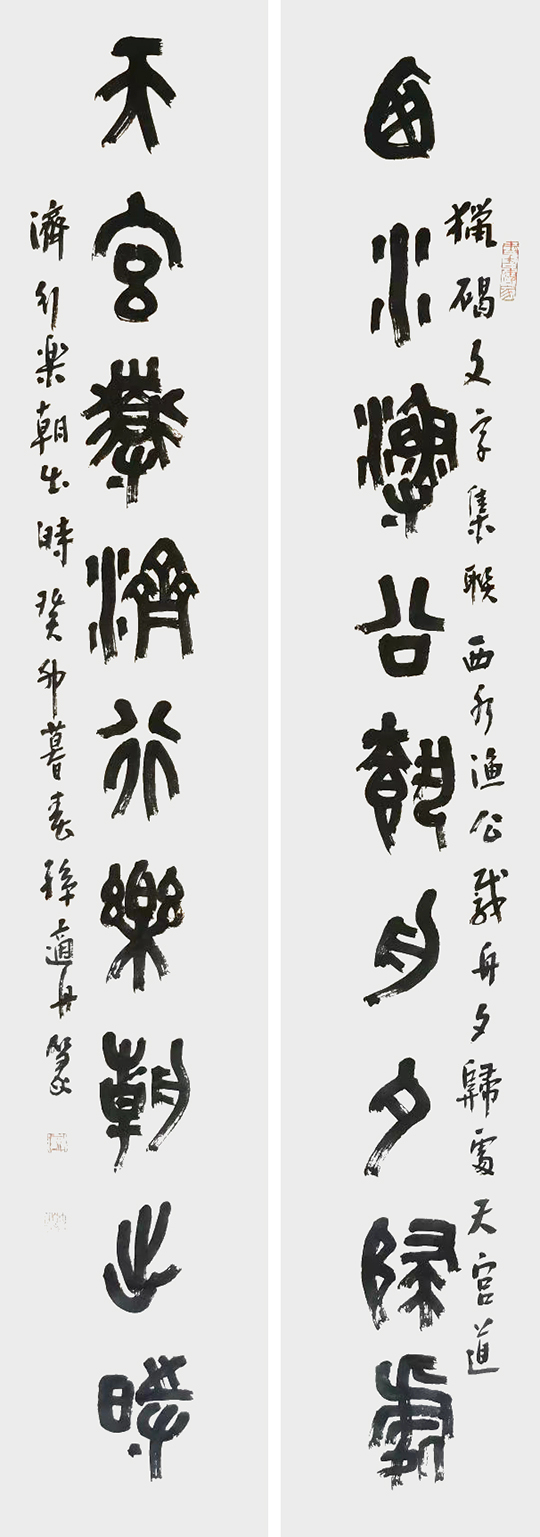 獵碣文字集聯西水漁公載舟夕歸處天宮道
西水漁公載舟夕歸處
天宮道濟行樂朝出時
濟行楽朝出時癸卯暮春孫適舟